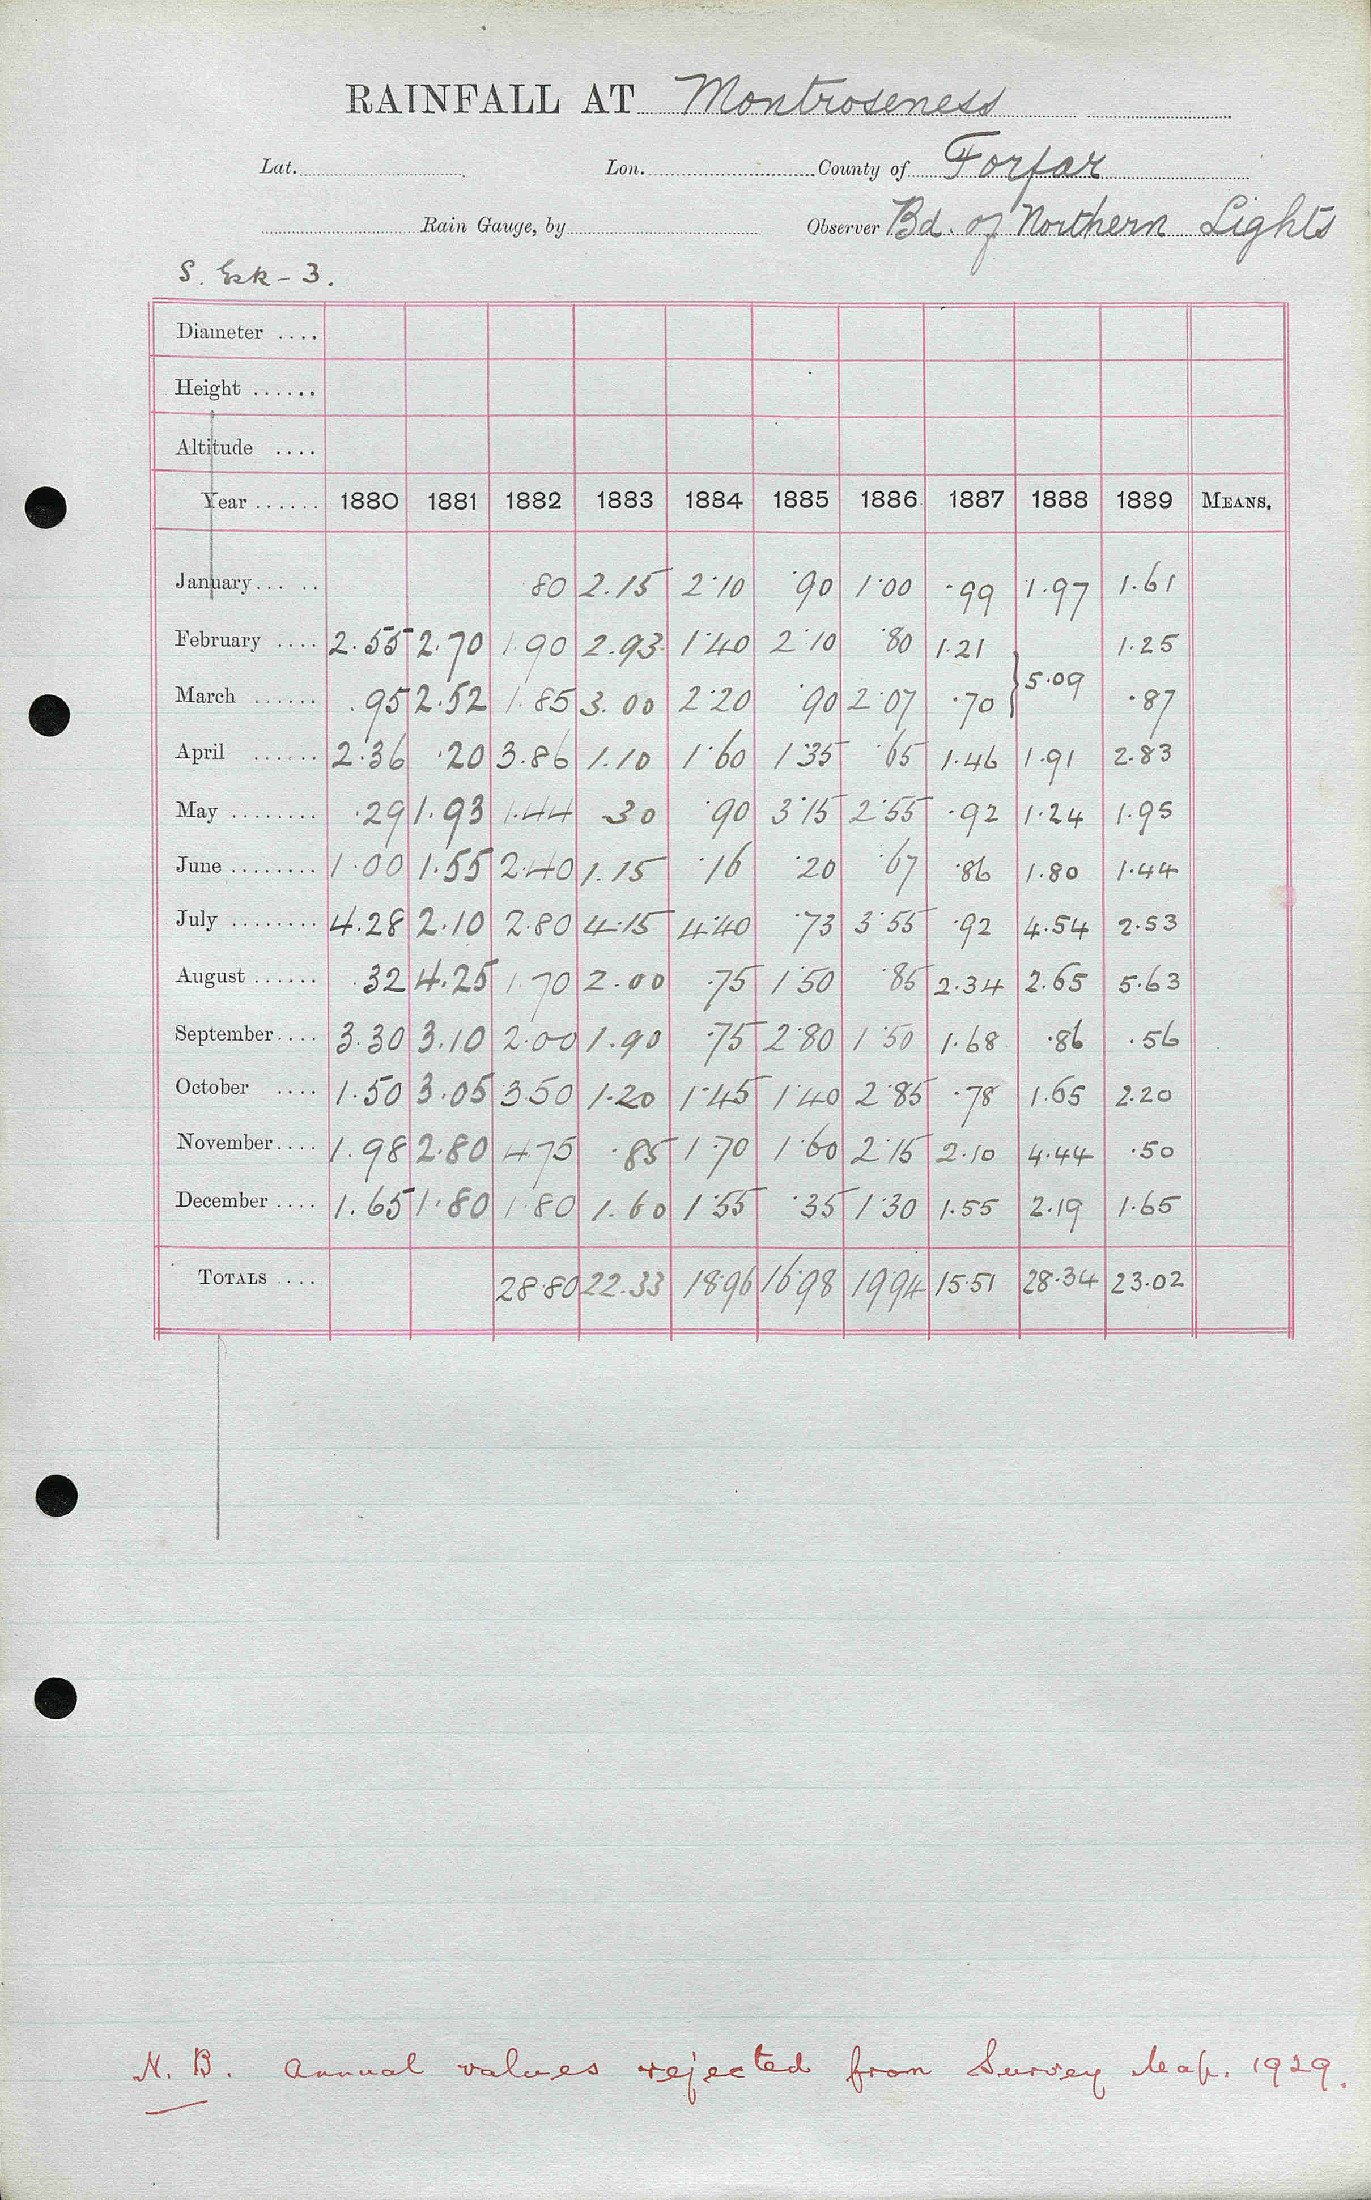 RAINFALL AT Montroseness
Lat. Lon. County of Forfar
Rain Gauge, by Observer Bd. of Northern Lights
S. Esk - 3.
Diameter ....
Height ......
Altitude ....
Year ...... 1880 1881 1882 1883 1884 1885 1886 1887 1888 1889 MEANS.
January.... .. 80 2.15 2.10 .90 1.00 .99 1.97 1.61
February .... 2.55 2.70 1.90 2.93 1.40 2.10 .80 1.21 } 5.09 1.25
March ...... .95 2.52 1.85 3.00 2.20 .90 2.07 .70 .87
April ...... 2.36 .20 3.86 1.10 1.60 1.35 .65 1.46 1.91 2.83
May ........ .29 1.93 1.44 30 .90 3.15 2.55 .92 1.24 1.95
June ........ 1.00 1.55 2.40 1.15 .16 .20 .67 .86 1.80 1.44
July ........ 4.28 2.10 2.80 4.15 4.40 .73 3.55 .92 4.54 2.53
August ...... .32 4.25 1.70 2.00 .75 1.50 .85 2.34 2.65 5.63
September.... 3.30 3.10 2.00 1.90 .75 2.80 1.50 1.68 .86 .56
October .... 1.50 3.05 3.50 1.20 1.45 1.40 2.85 .78 1.65 2.20
November.... 1.98 2.80 4.75 .85 1.70 1.60 2.15 2.10 4.44 .50
December .... 1.65 1.80 1.80 1.60 1.55 .35 1.30 1.55 2.19 1.65
TOTALS .... 28.80 22.33 18.96 16.98 19.94 15.51 28.34 23.02
N. B. Annual values rejected from Survey Map. 1929.